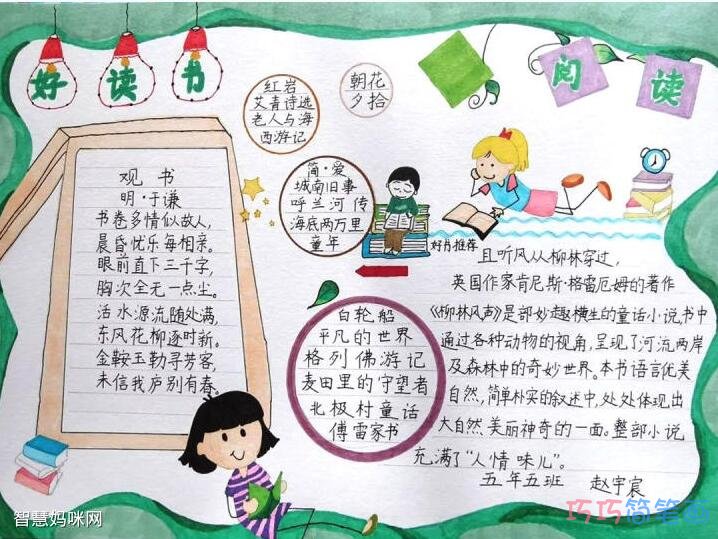 好读书
阅读
红岩
艾青诗选
老人与海
西游记
朝花
夕拾
简·爱
城南旧事
呼兰河传
海底两万里
童年
观书
明·于谦
书卷多情似故人,
晨昏忧乐每相亲。
眼前直下三千字,
胸次全无一点尘。
活水源流随处满,
东风花柳逐时新。
金鞍玉勒寻芳客,
未信我庐别有春。
好书推荐
白轮船
平凡的世界
格列佛游记
麦田里的守望者
北极村童话
傅雷家书
且听风从柳林穿过,
英国作家肯尼斯·格雷厄姆的著作
《柳林风声》是部妙趣横生的童话小说,书中
通过各种动物的视角,呈现了河流两岸
及森林中的奇妙世界。本书语言优美
自然,简单朴实的叙述中,处处体现出
大自然美丽神奇的一面。整部小说
充满了“人情味儿”。
五年五班 赵宇宸
智慧妈咪网
巧巧简笔画